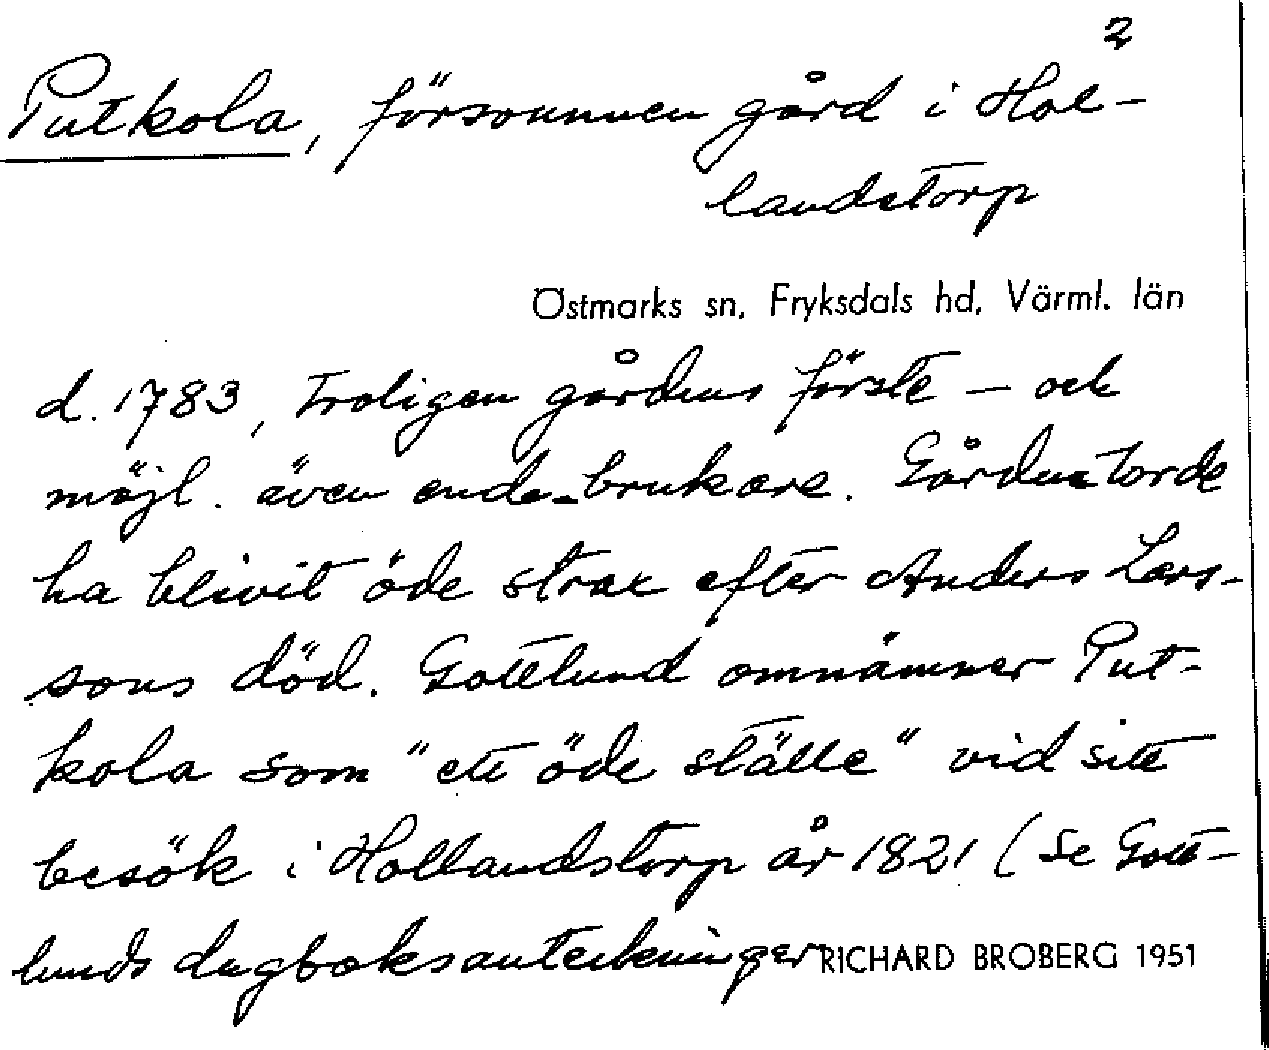 2
Putkola, försvunnen gård i Hol-
landstorp
Östmarks sn, Fryksdals hd, Värml. län
d. 1783, troligen gårdens förste – och
möjl. även ende brukare. Gården torde
ha blivit öde strax efter Anders Lars-
sons död. Gottlund omnämner Put-
kola som "ett öde ställe" vid sitt
besök i Hollandstorp år 1821 (se Gott-
lunds dagboksanteckningar
RICHARD BROBERG 1951